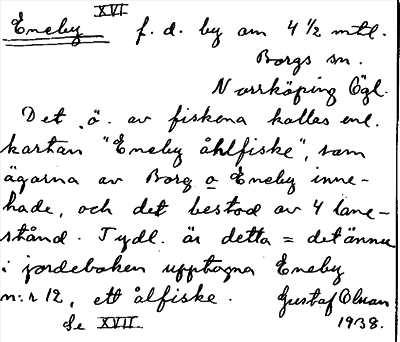 XVI
Eneby f. d. by om 4 1/2 mtl.
Borgs sn.
Norrköping Ögl.
Det ö. av fiskena kallas enl.
kartan "Eneby åhlfiske", som
ägarna av Borg o Eneby inne-
hade, och det bestod av 4 lane-
stånd. Tydl. är detta = det ännu
i jordeboken upptagna Eneby
n:r 12, ett ålfiske. Gustaf Olsson
Se XVII. 1938.